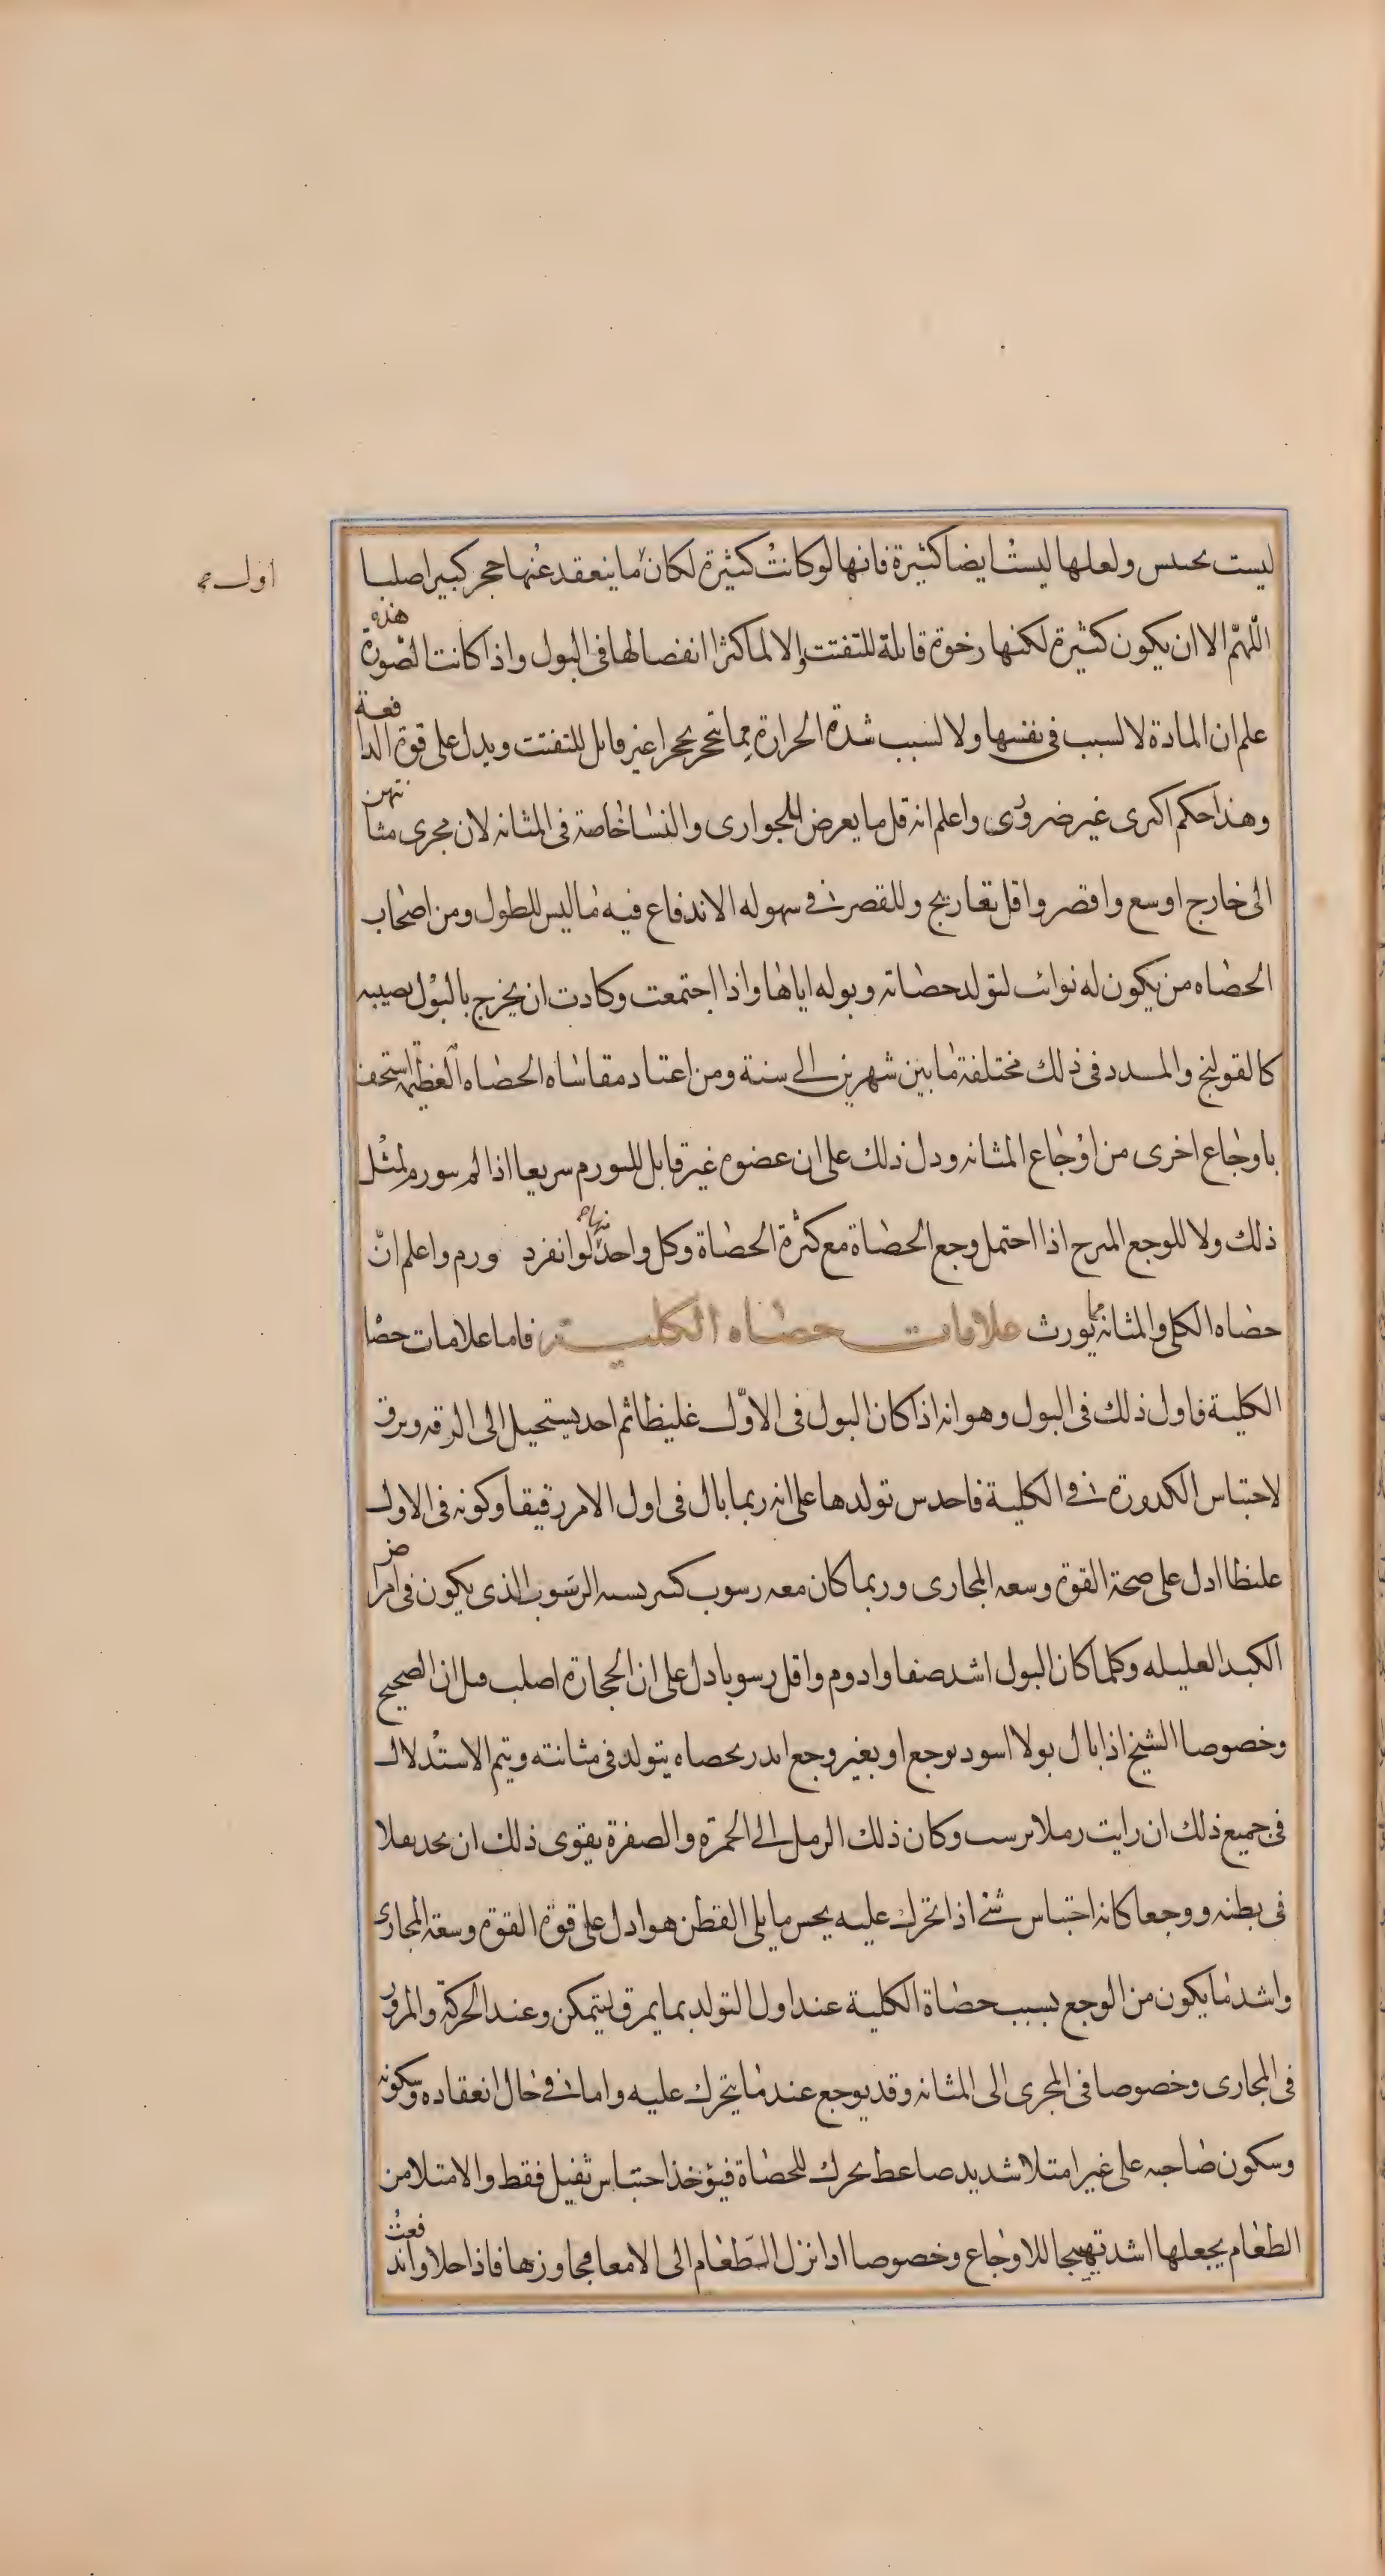 ليست بحبس ولعلها ليست ايضا كثيرة فانها لو كانت كثيرة لكان ما ينعقد عنها حجر كبيرا صلبا
اول
اللّهمّ الا ان يكون كثيرة لكنها رخوة قابلة للتفتت والا لما كثرا انفصالها فى البول واذا كانت الصّورة هذه
علم ان المادة لا لسبب فى نفسها ولا لسبب شدة الحرارة مما تحجر تحجرا غير قابل للتفتت ويدل على قوة الدافعة
وهذا حكم اكثرى غير ضرورى واعلم انه قل ما يعرض للجوارى والنسا خاصة فى المثانه لان مجرى مثانتهن
الى خارج اوسع واقصر واقل تعاريج وللقصر فى سهوله الاندفاع فيه ما ليس للطول ومن اصحاب
الحصاه من يكون له نوائب لتولد حصاته وبوله اياها واذا اجتمعت وكادت ان يخرج بالبول يصيبه
كالقولنج والمدد فى ذلك مختلفة ما بين شهرين الى سنة ومن اعتاد مقاساه الحصاه العظيمة استخف
باوجاع اخرى من اوجاع المثانه ودل ذلك على ان عضوه غير قابل للتورم سريعا اذا لم يتورم لمثل
ذلك ولا للوجع المبرح اذا احتمل وجع الحصاة مع كثرة الحصاة وكل واحد منهما لو انفرد ورم واعلم انّ
حصاه الكلى والمثانه مما يورث علامات حصاه الكلية فاما علامات حصا
الكلية فاول ذلك فى البول وهو انه اذا كان البول فى الاوّل غليظا ثم اخذ يستحيل الى الرقه ويرق
لاحتباس الكدورة فى الكلية فاحدس تولدها على انه ربما بال فى اول الامر رقيقا وكونه فى الاول
غليظا ادل على صحة القوة وسعه المجارى وربما كان معه رسوب كثير يشبه الرسوب الذى يكون فى امراض
الكبد العليله وكلما كان البول اشد صفا وادوم واقل رسوبا دل على ان الحجارة اصلب قيل ان الصحيح
وخصوصا الشيخ اذا بال بولا اسود بوجع او بغير وجع انذر بحصاه يتولد فى مثانته ويتم الاستدلال
فى جميع ذلك ان رايت رملا يرسب وكان ذلك الرمل الى الحمرة والصفرة يقوى ذلك ان يجد ثقلا
فى بطنه ووجعا كانه احتباس شئ اذا تحرك عليه يحس ما يلى القطن هو ادل على قوة القوة وسعة المجارى
واشد ما يكون من الوجع بسبب حصاة الكلية عند اول التولد بما يمزق ليتمكن وعند الحركة والمرور
فى المجارى وخصوصا فى المجرى الى المثانه وقد يوجع عند ما يتحرك عليه واما فى حال انعقاده وسكونه
وسكون صاحبه على غير امتلا شديد يحرك للحصاة فيؤخذ احتباس ثقيل فقط والامتلا من
الطعام يجعلها اشد تهييجا للاوجاع وخصوصا اذا نزل الطعام الى الامعا مجاوزها فاذا خلا واندفعت